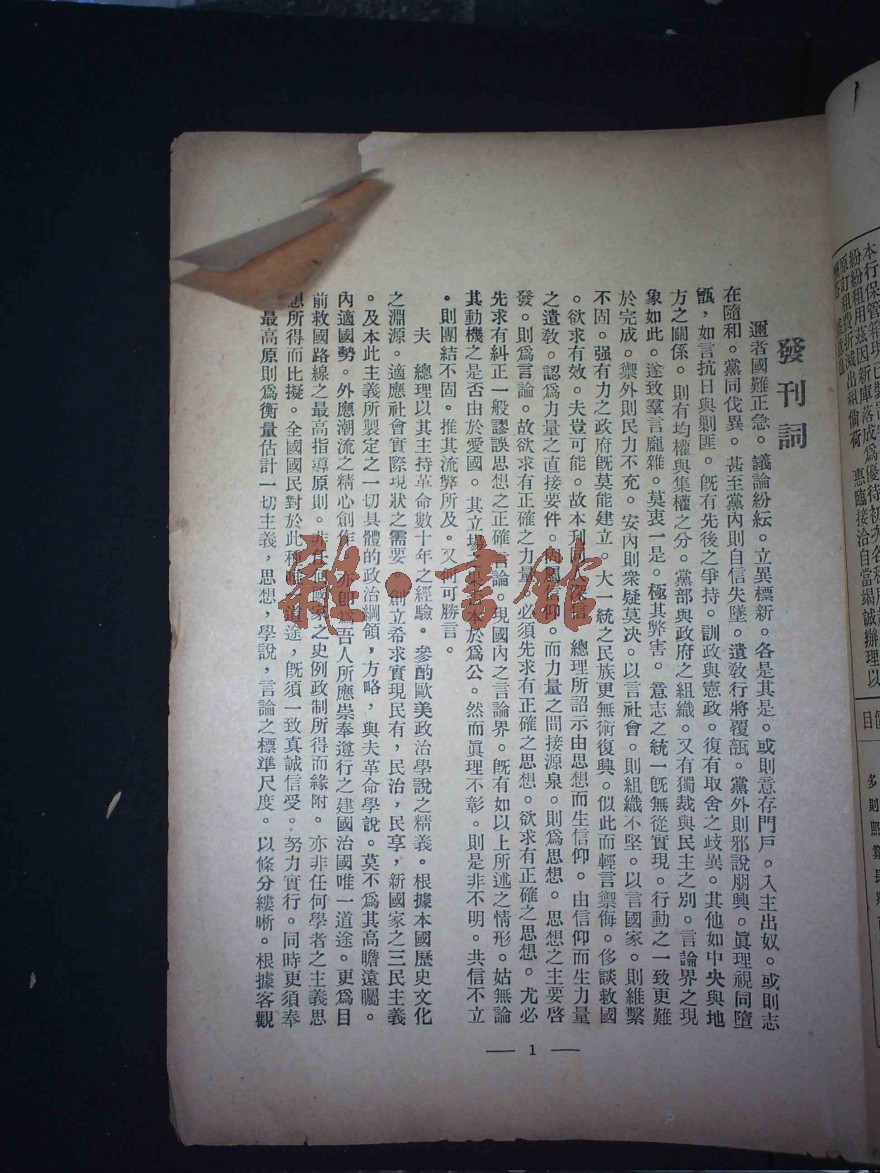 發刊詞
邇者國難正急。議論紛紜。立異標新。各是其是。或則意存門戶。入主出奴。或則志
在隨和。黨同伐異。甚至黨內則自信失墜。遺教行將覆瓿。黨外則邪說朋興。眞理視同墮
甑,如言抗日與剿匪。旣有先後之爭持。訓政與憲政。復有取舍之歧異。其他如中央與地
方之關係。則有均權與集權之分。黨部與政府之組織。又有獨裁與民主之別。言論界之現
象如此。遂致羣言龐雜。莫衷一是。極其弊害。意志之統一旣無從實現。行動之一致更難
於完成。禦外則民力不充。安內則衆疑莫决。以言社會。則組織不堅。以言國家。則維繫
不固。强有力之政府旣莫能建立。大一統之民族更無術復興。似此而輕言禦侮。侈談救國
。欲求有效。夫豈可能。故本刊同人深信 總理所詔示由思想而生信仰。由信仰而生力量
之遺敎。認爲力量之直接要件。仰。而力量之間接源泉。則爲思想。思想之主要啓
發。則爲言論。故欲求有正確之力量。必須先求有正確之思想。欲求有正確之思想。尤必
先求有糾正一般謬誤思想之正確言論。現國內之言論界。旣有如以上所述之情形。姑無論
其動機之是否由於愛國。其立場本於爲公。然而眞理不彰。則是非不明。共信不立
。則團結不固。推其流弊所及。又何可勝言。
夫 總理以其主持革命數十年之經驗。參酌歐美政治學說之精義。根據本國歷史文化
之淵源。適應社會實際現狀之需要。創立希求實現民有,民治,民享,新國家之三民主義
。及本此主義所製定之一切具體的政治綱領,方略,與夫革命學說。莫不爲其高瞻遠矚。
內適國勢。外應潮流之精心創作。亦卽爲吾人所應崇奉遵行之建國治國唯一道途。更爲目
前救國路線之最高指導原則。非任何國家之史例政制所得而緣附。亦非任何學者之主義思
想所得而比擬。全國國民對於此種唯一道途,旣須一致眞誠信受。努力實行。同時更須奉
最高原則爲衡量估計一切主義,思想,學說,言論之標準尺度。以條分縷晰。根據客觀
— 1 —
雜·書館
本行保管箱現已
紛紛租用茲因新庫落成爲優待初
原訂租費折減出租倘荷 惠臨接洽自當竭誠辦理